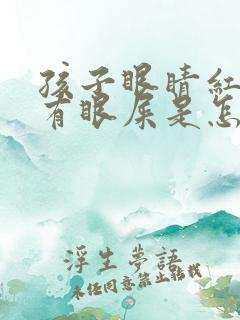 孩子眼睛红
有眼屎是怎
浮生夢語
未经同意禁止转载